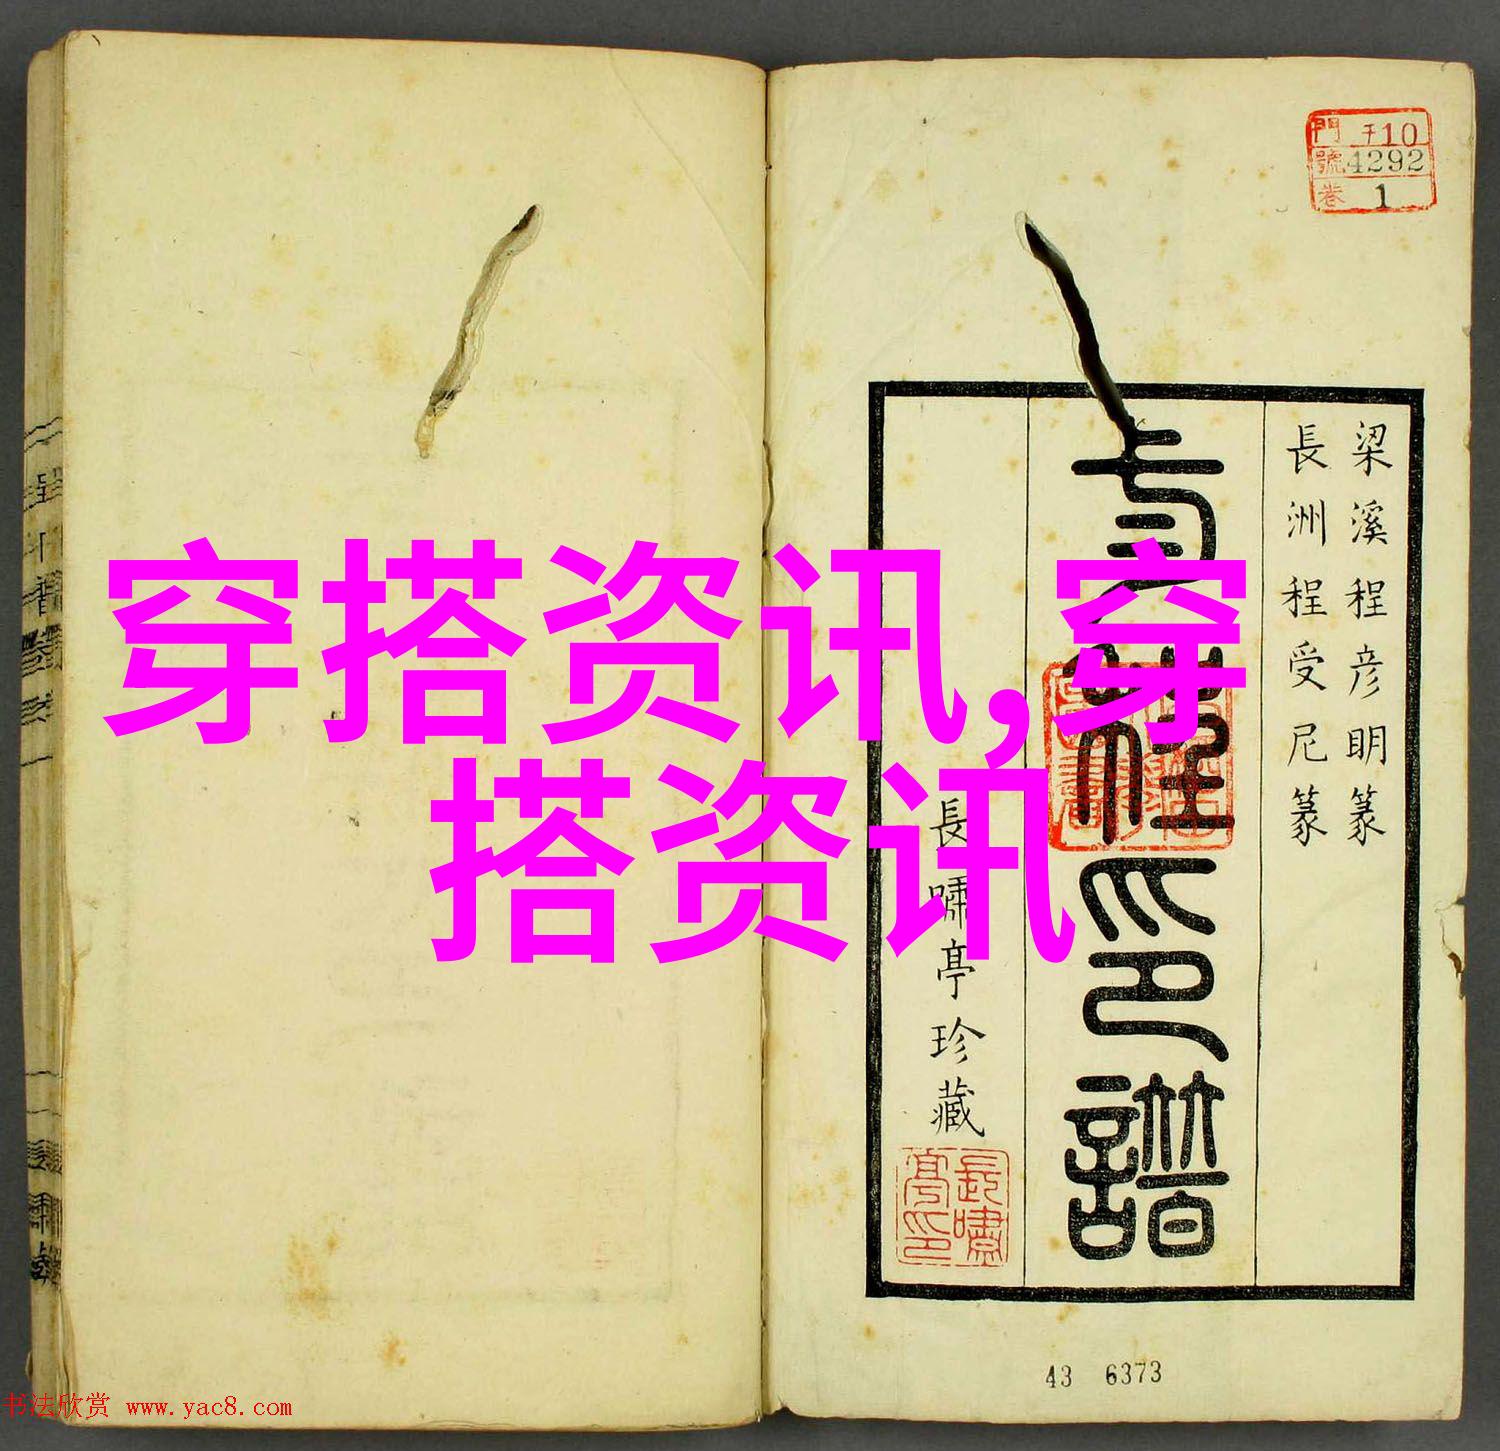 穿搭资讯,穿
搭资讯
門 チ10
號 4292
卷 1
梁溪程彦明篆
長洲程受尼篆
印譜
長嘯亭珍藏
長嘯亭印
43 6373
书法欣赏 www.yac8.com